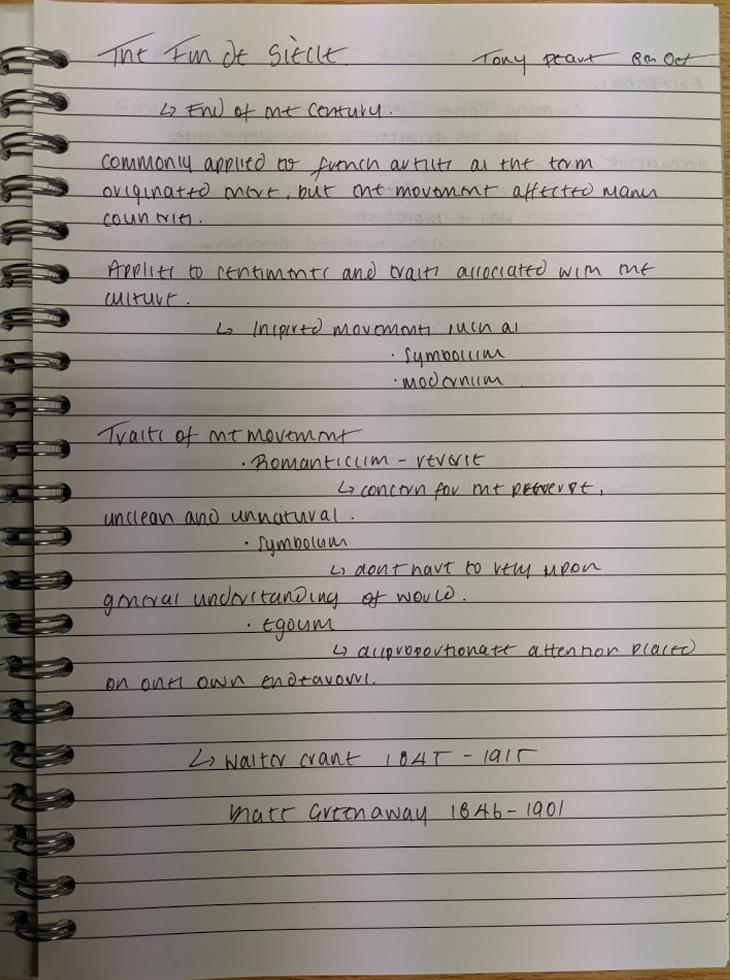 The Fin de Siècle. Tony Peart 8th Oct
↳ End of the century.
commonly applied to french artists as the term
originated there, but the movement affected many
countries.
Applies to sentiments and traits associated with the
culture.
↳ Inspired movements such as
· Symbolism
· modernism
Traits of the movement
· Romanticism - reverie
↳ concern for the perverse,
unclean and unnatural.
· Symbolism
↳ dont have to rely upon
general understanding of world.
· Egoism
↳ disproportionate attention placed
on ones own endeavours.
↳ Walter Crane 1845 - 1915
Greenaway 1846 - 1901